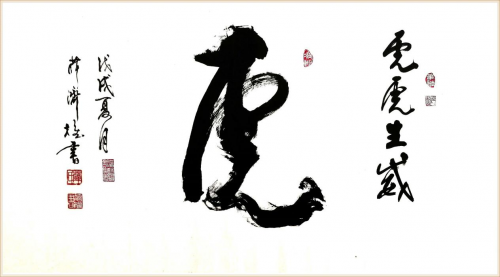 虎虎生威
虎
戊戌夏月
濟書